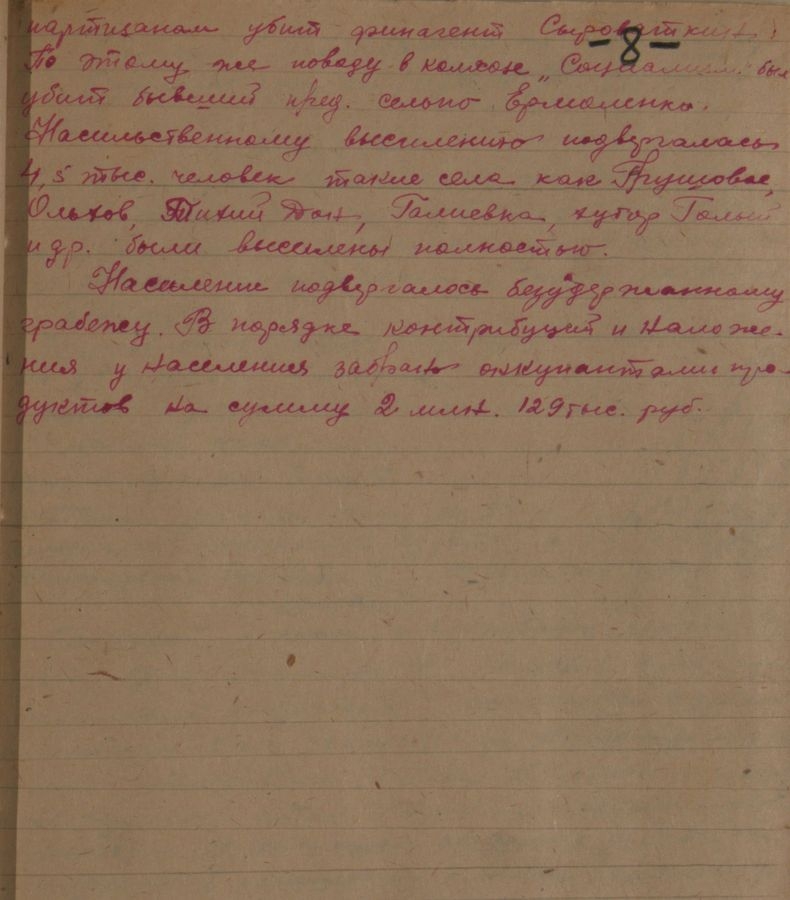 - 8 -
партизанам убит финагент Сыроваткин.
По этому же поводу в колхозе „Социализм" был
убит бывший пред. сельпо Ермоленко.
Насильственному выселению подвергалась
4,5 тыс. человек такие села как
Ольхов, Тихий Дон, Галиевка, хутор Голый
и др. были выселены полностью.
Население подвергалось безудержанному
грабежу. В порядке контрибуций и наложе-
ния у населения забрано оккупантами про-
дуктов на сумму 2 млн. 129 тыс. руб.